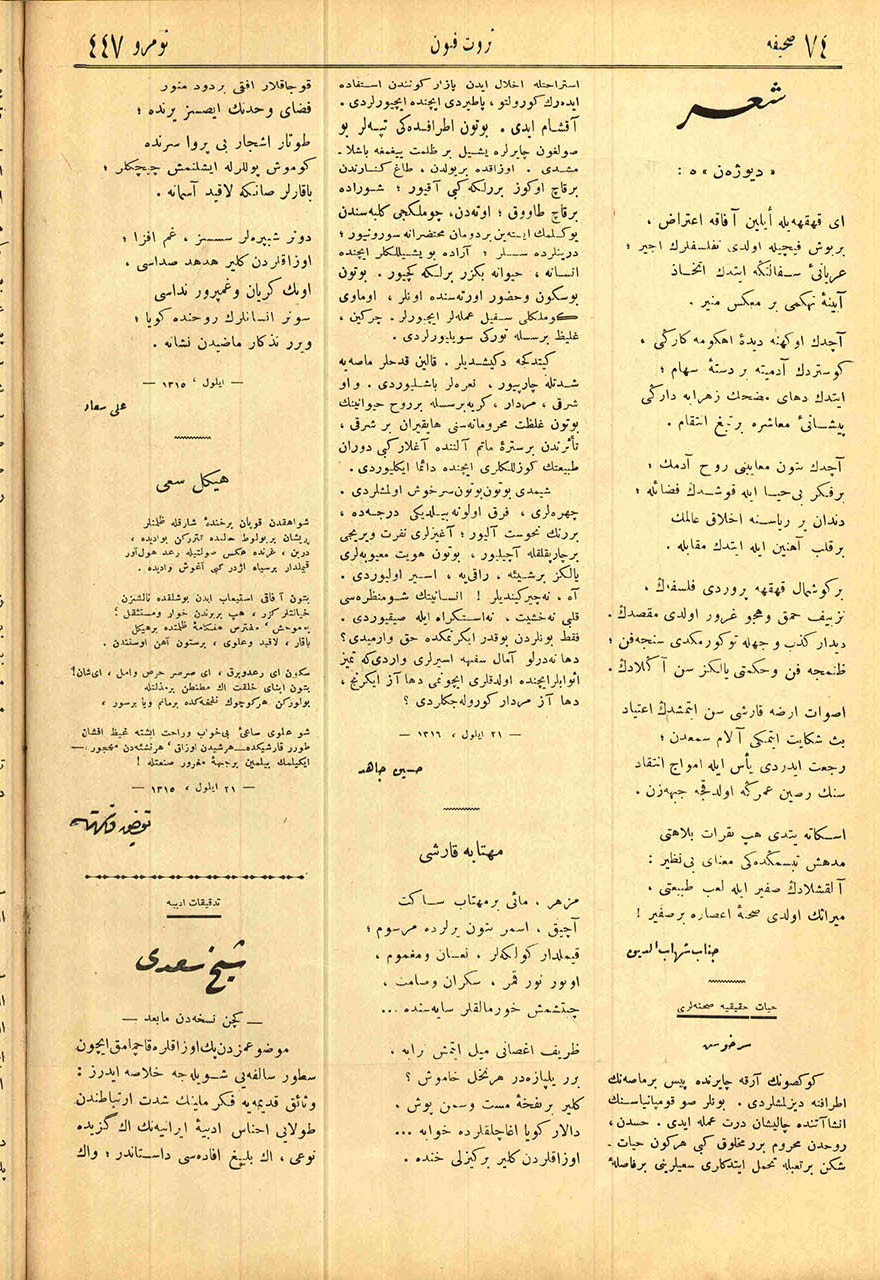 ٧٤ صحيفه
ثروت فنون
نومرو ٤٤٧
شعر
« ديوژهن » ه :
ای قهقهه‌يله أيلين آفاقه اعتراض ،
بربوش فيچيله اولدی تفلسفلرك اجير ؛
عريانئ سفالتكه ايتدك اتخاذ
آيينهٔ تهكمی بر معكس منير .
آچدك اوكهنه ديدهٔ اهكومه كارگی ،
كوستردك آدميته بر دستهٔ سهام ؛
ايتدك دهای مضحك زهرابه دارگی
پيشانئ معاشره بر تيغ انتقام .
آچدك ستون معايبنی روح آدمك ؛
برفكر بی‌حيا ايله قوشدك فضائله ؛
دندان بر رياسنه اخلاق عالمك
برقلب آهنين ايله ايتدك مقابله .
بر كوشمال قهقهه پروردی فلسفه‌ك ،
تزييف حمق وهجو غرور اولدی مقصدك .
ديدار كذب و جهله توكورمكدی سنجه‌فن ؛
ظنمجه فن وحكمتی يالكز سن آكلادك .
اصوات ارضه قارشی سن ايتمشدك اعتياد
بث شكايت ايتمكی آلام سمعدن ؛
رجعت ايدردی يأس ايله امواج انتقاد
سنك رصين عمرگه اولدقجه جبهه‌زن .
اسكاته يتدی هپ نقرات بلاهتی
مدهش تبسمكده‌كی معنای بی‌نظير :
آلقشلادك صفير ايله لعب طبيعتی ،
ميراثك اولدی صحنهٔ اعصاره برصفير !
جناب شهاب الدين
حيات حقيقيه صحنه‌لری
سرخوش
كوكصونك آرقه چايرنده پيس برماصه‌نك
اطرافنه ديزلمشلردی . بونلر صو قومپانياسنك
انشاآتنده چاليشان درت عمله ايدی . حسدن ،
روحدن محروم برر مخلوق كبی هركون حيات ـ
شكن برتعبله تحمل ايتدكاری سعيلرينی برفاصلهٔ
استراحتله اخلال ايدن بازار كونندن استفاده
ايدەرك كورولتو ، پاطيردی ايچنده ايچيورلردی .
آقشام ايدی . بوتون اطرافده‌كی تپه‌لر بو
صولغون چايرلره يشيل بر ظلمت ييغمغه باشلا ـ
مشدی . اوزاقده بريولدن ، طاغ كنارندن
برقاچ اوكوز بررلكه كبی آقيور ؛ شوراده
برقاچ طاووق ؛ اوته‌دن، چوملكجی كلبه‌سندن
يوكسلمك ايسته‌ين بردومان محتضرانه سورونيور ؛
درينلرده سسلر ؛ آراده بويشيللكلر ايچنده
انسانه ، حيوانه بكزر برلكه كچيور . بوتون
بوسكون وحضور اورته‌سنده اونلر ، اوماوی
كوملكلی سفيل عمله‌لر ايچيورلر . چركين ،
غليظ برسسله توركی سويليورلردی .
كيتدكجه دكيشديلر . قالين قدحلر ماصه‌يه
شدتله چارپيور ، نعره‌لر باشليوردی . واو
شرقی ، مردار ، كريه‌برسسله برروح حيوانينك
بوتون غلظت محرومانه‌سنی هايقيران بر شرقی ،
تأثرندن برسترهٔ ماتم آلتنده آغلار كبی دوران
طبيعتك كوزللكلری ايچنده دائما ايكليوردی .
شيمدی بوتون‌بوتون‌سرخوش اولمشلردی .
چهره‌لری ، فرق اولونه‌بيلديكی درجه‌ده ،
بررنك نحوست آليور ؛ آغيزلری نفرت ويريجی
برچارپقلقله آچيليور ، بوتون هويت معيوبه‌لری
يالكز برشيئه ، راقی‌يه ، اسير اوليوردی .
آه ، نه‌چيركينديلر ! انسانيتك شومنظره‌سی
قلبی نه‌خشيت ، نه‌استكراه ايله صيقيوردی .
فقط بونلردن بوقدر ايكرنمكده حق وارميدی؟
دها نه‌درلو آمال سفيهه اسيرلری واردی‌كه تميز
اثوابلرايچنده اولدقلری ايچونمی دها آز ايكرنج ،
دها آز مردار كوروله‌جكلردی ؟
— ٢١ ايلول ، ١٣١٦ —
حسين جاهد
مهتابه قارشی
مزهر ، مائی برمهتاب ساكت
آچيق ، اسمر ستون يرلرده مرسوم ؛
قيملدار كولكه‌لر ، نعسان ومغموم ،
اوپور نور قمر ، سكران وصامت ،
چيتشمش خورمالقلر سايه‌سنده ...
ظريف اغصانی ميل ايتمش ترابه ،
برر يلپازه‌در هرنخل خاموش ؟
كلير برنفخهٔ مست وسمن پوش .
دالار كويا اغاچلقلرده خوابه ...
اوزاقلردن كلير بركيزلی خنده .
قوجاقلار افقی بردود منور
فضای وحدتك ايصسز يرنده ؛
طوتار اشجار بی پروا سرنده
كوموش پوللرله ايشلنمش چيچكلر ؛
باقارلر صانكه لاقيد آسمانه .
دونر شبپره‌لر سسسز ، غم افزا ؛
اوزاقلردن كلير هدهد صداسی ،
اونك كريان وغمپرور نداسی
سونر انسانلرك روحنده كويا ؛
ويرر تذكار ماضيدن نشانه .
— ايلول ، ١٣١٥ —
علی سعاد
هيكل سعی
شواهقدن قوپان برخندهٔ شارقله ظلمتلر
پريشان بربولوط حالنده تتررکن بواديده ،
درين ، غرنده عكس صولتيله رعد هول‌آور
قيملدار برسياه اژدر كبی آغوش واديده .
بتون آفاقی استيعاب ايدن بوشلقده نالشزن
خيالتلركزر ، هپ بربرندن خوار ومستثقل ؛
بوموحش ، مفترس هنكامهٔ ظلمتده برهيكل
باقار ، لاقيد وعلوی ، برستون آهن اوستندن .
سكون ای رعدوبرق ، ای صرصر حرص وامل ، ای‌شان!
بتون ابنای خلقت اك مطنطن برمذلتله
بولوركن هركوچوك نفخه‌كده برماتم ويا برسور ،
شو علوی ساعئ بی‌خواب وراحت ايشته غيظ افشان
طورر قارشيكده... هرشيدن اوزاق، هرنشئه‌دن مهجور، —
ايكيلمك بيلمين برجبههٔ مغرور صنعتله !
— ٢١ ايلول ، ١٣١٥ —
توفيق فكرت
تدقيقات ادبيه
شيخ سعدی
— كچن نسخه‌دن مابعد —
موضوعمزدن پك اوزاقلره قاچمامق ايچون
سطور سالفه‌يی شويله‌جه خلاصه ايدرز :
وثائق قديمه‌يه فكر ملينك شدت ارتباطندن
طولايی اجناس ادبيهٔ ايرانيه‌نك اك گزيده
نوعی ، اك بليغ افاده‌سی داستاندر ؛ واك